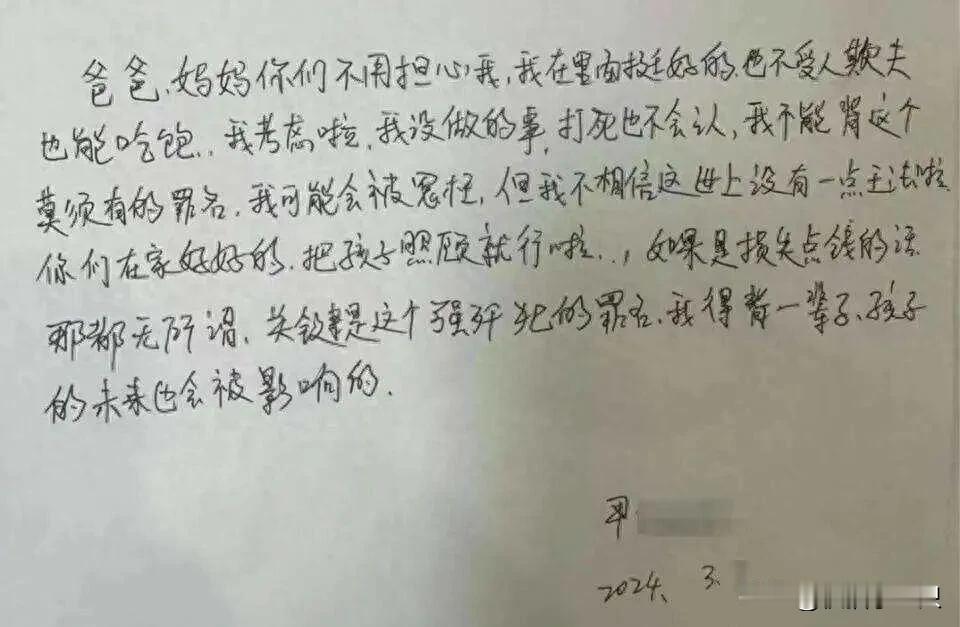 爸爸、妈妈你们不用担心我，我在里面挺好的.也不受人欺夫
也能吃饱..我考虑啦，我没做的事，打死也不会认，我不能背这个
莫须有的罪名，我可能会被冤枉，但我不相信这世上没有一点王法啦
你们在家好好的.把孩子照顾就行啦..，如果是损失点钱的话
那都无所谓，关键是这个强奸犯的罪名，我得背一辈子、孩子
的未来也会被影响的.
甲
2024、3.